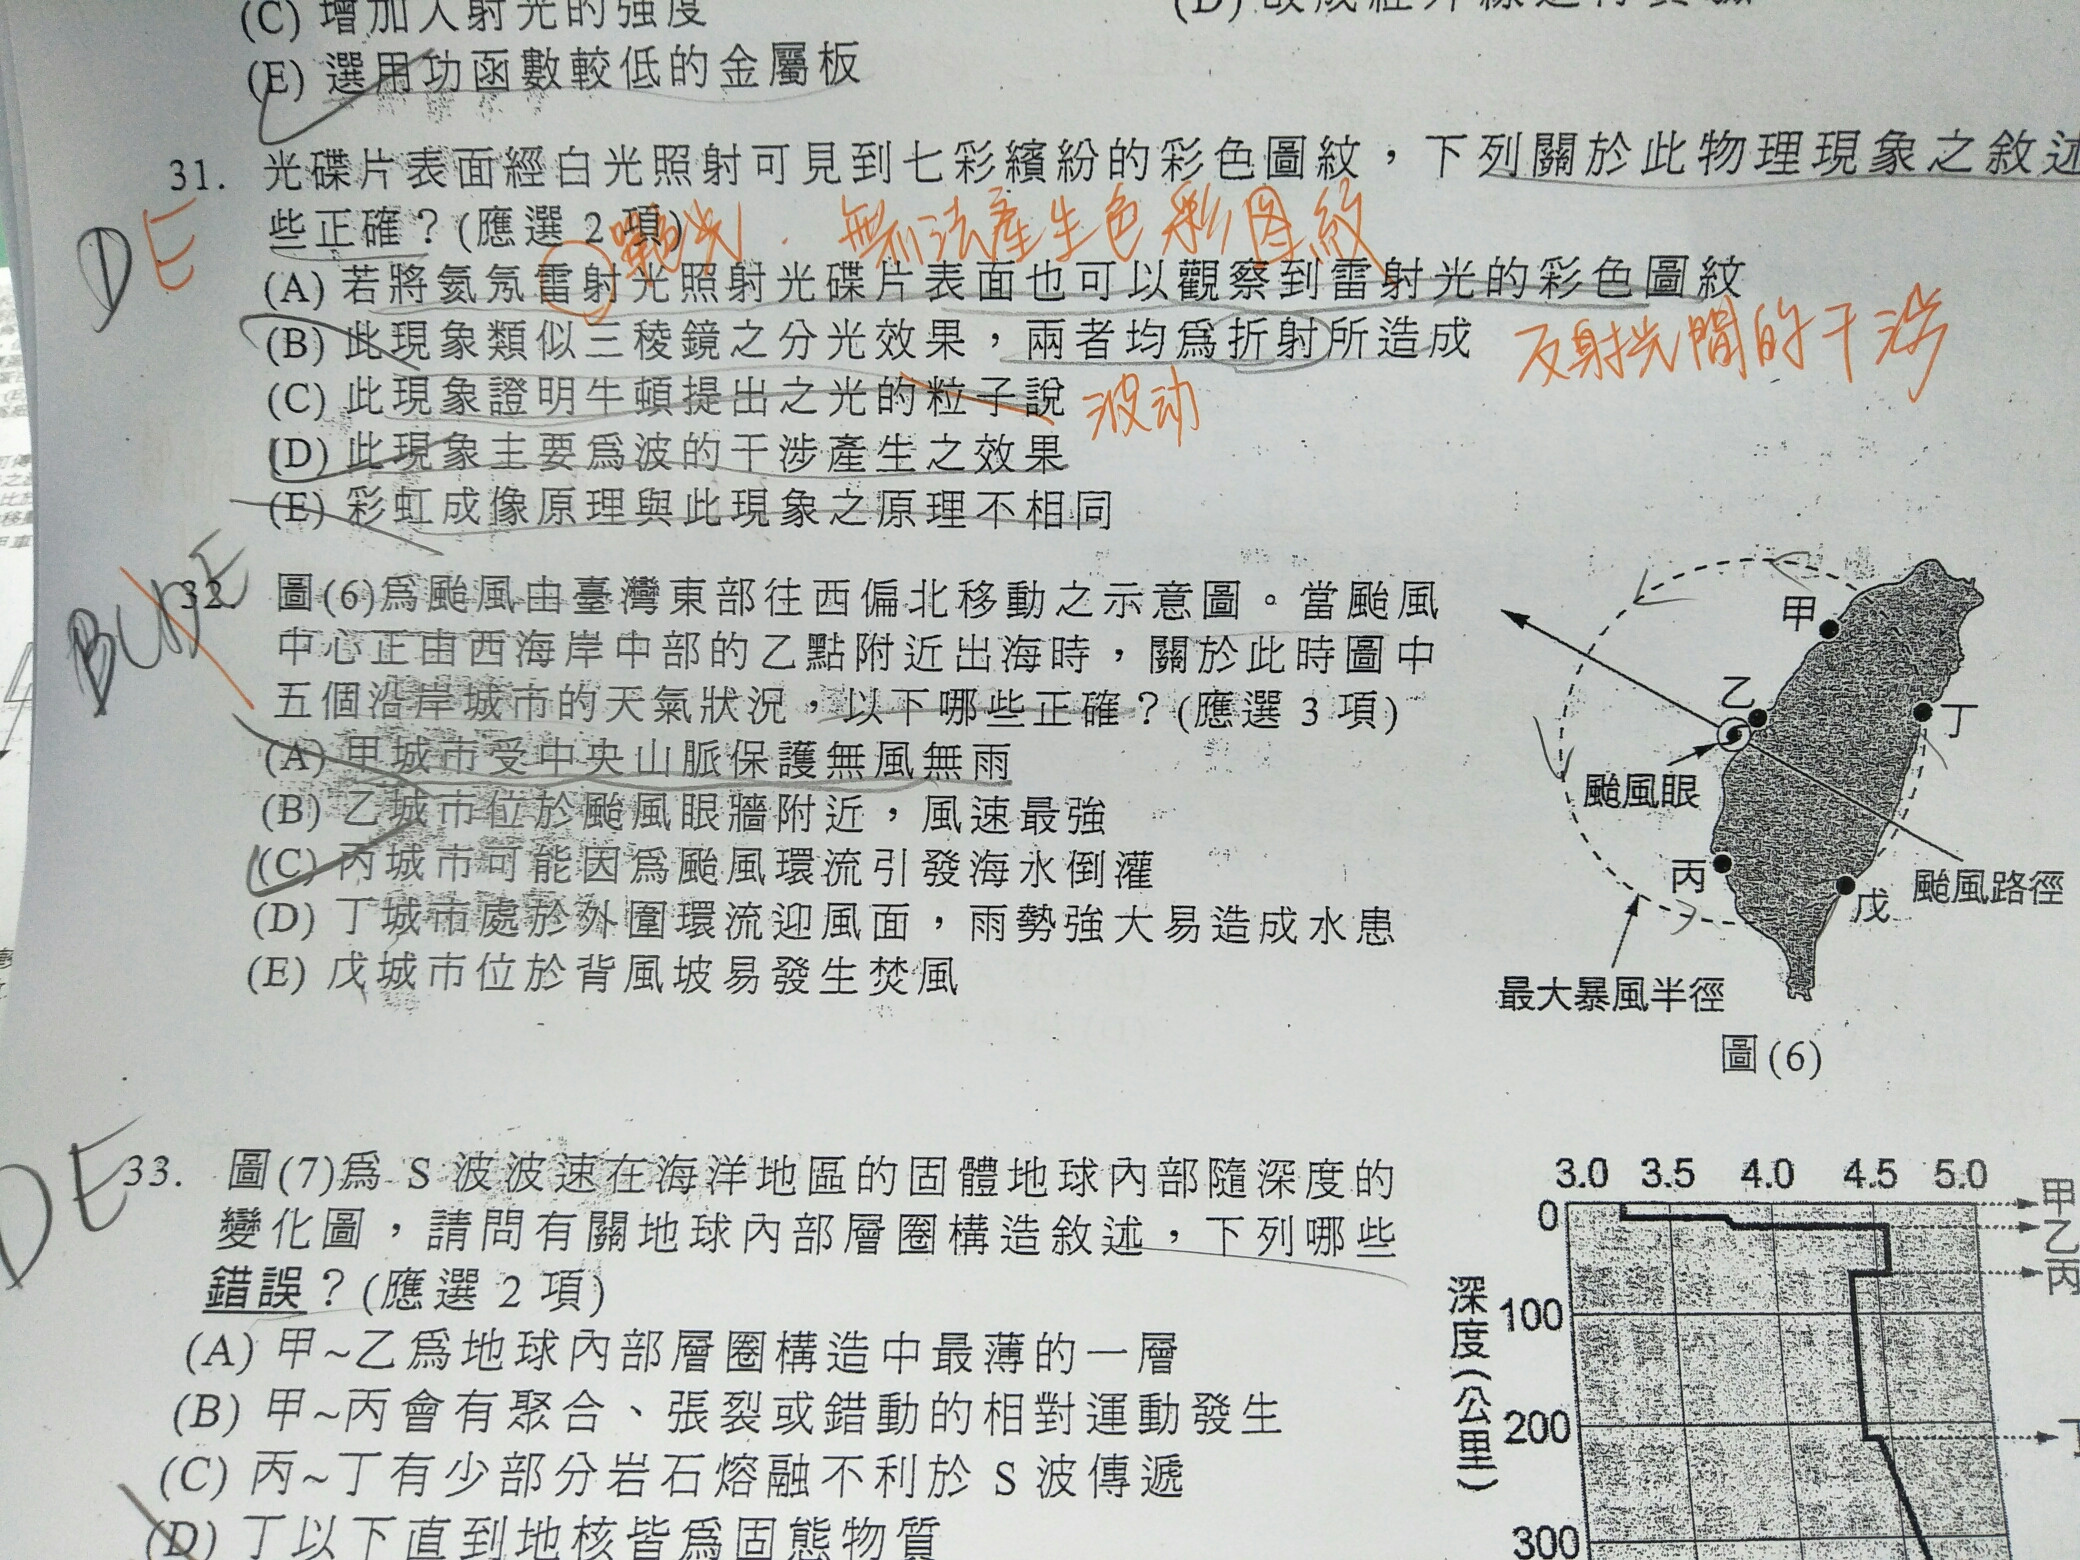 (C) 增加入射光的強度
(E) 選用功函數較低的金屬板
31. 光碟片表面經白光照射可見到七彩繽紛的彩色圖紋，下列關於此物理現象之敘述
些正確？(應選 2 項)
D E
單色光．無法產生色彩图紋
(A) 若將氦氖雷射光照射光碟片表面也可以觀察到雷射光的彩色圖紋
(B) 此現象類似三稜鏡之分光效果，兩者均為折射所造成
反射光間的干涉
(C) 此現象證明牛頓提出之光的粒子說
波动
(D) 此現象主要為波的干涉產生之效果
(E) 彩虹成像原理與此現象之原理不相同
32. 圖(6)為颱風由臺灣東部往西偏北移動之示意圖。當颱風
中心正由西海岸中部的乙點附近出海時，關於此時圖中
五個沿岸城市的天氣狀況，以下哪些正確？(應選 3 項)
(A) 甲城市受中央山脈保護無風無雨
(B) 乙城市位於颱風眼牆附近，風速最強
(C) 丙城市可能因為颱風環流引發海水倒灌
(D) 丁城市處於外圍環流迎風面，雨勢強大易造成水患
(E) 戊城市位於背風坡易發生焚風
甲
乙
丁
颱風眼
丙
戊
颱風路徑
最大暴風半徑
圖(6)
DE
33. 圖(7)為 S 波波速在海洋地區的固體地球內部隨深度的
變化圖，請問有關地球內部層圈構造敘述，下列哪些
錯誤？(應選 2 項)
(A) 甲~乙為地球內部層圈構造中最薄的一層
(B) 甲~丙會有聚合、張裂或錯動的相對運動發生
(C) 丙~丁有少部分岩石熔融不利於 S 波傳遞
(D) 丁以下直到地核皆為固態物質
3.0 3.5 4.0 4.5 5.0
0
100
200
300
深度(公里)
甲
乙
丙